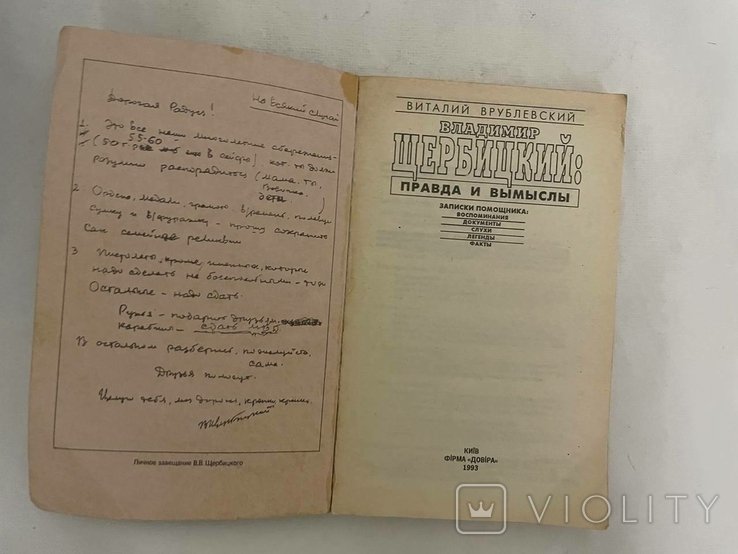 На всякий случай
Дорогая Радуся!
1. Это все наши многолетние сбережения-
55-60
(50 т. в сейфе) кот. ты должна
разумно распорядиться (мама, ты,
дети)
2. Ордена, медали, грамоты
сумку и прошу сохранить
как семейные реликвии
3. Пистолеты, кроме именных, которые
надо сделать не боеспособными -
Остальное - надо сдать.
Ружья - подарить друзьям,
карабины - сдать
В остальном разберись, пожалуйста,
сама.
Друзья помогут.
Целую тебя, моя дорогая, крепко, крепко.
Личное завещание В.В. Щербицкого
ВИТАЛИЙ ВРУБЛЕВСКИЙ
ВЛАДИМИР
ЩЕРБИЦКИЙ:
ПРАВДА И ВЫМЫСЛЫ
ЗАПИСКИ ПОМОЩНИКА:
ВОСПОМИНАНИЯ
ДОКУМЕНТЫ
СЛУХИ
ЛЕГЕНДЫ
ФАКТЫ
КИЇВ
ФІРМА «ДОВІРА»
1993
VIOLITY